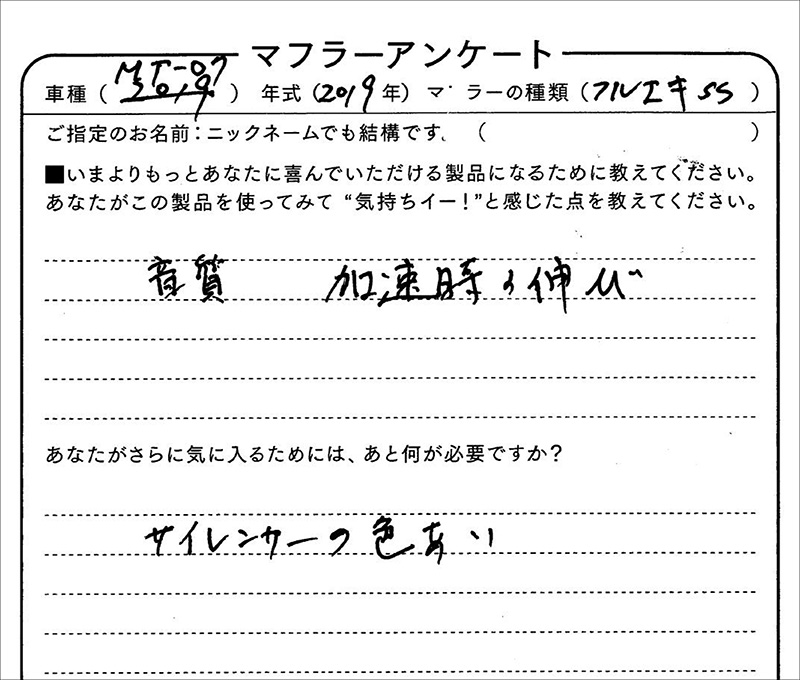 マフラーアンケート
車種(MT-07) 年式(2019年) マ ラーの種類(フルエキSS)
2019
ご指定のお名前:ニックネームでも結構です、( )
■いまよりもっとあなたに喜んでいただける製品になるために教えてください。
あなたがこの製品を使ってみて“気持ちイー!”と感じた点を教えてください。
音質 加速時の伸び
あなたがさらに気に入るためには、あと何が必要ですか?
サイレンサーの色あい